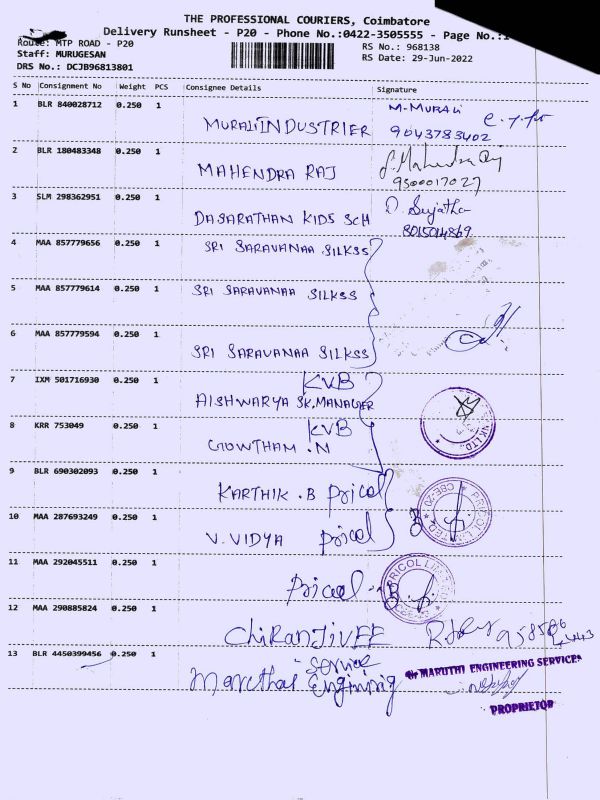 THE PROFESSIONAL COURIERS, Coimbatore
Delivery Runsheet - P20 - Phone No.:0422-3505555 - Page No.:1
Route: MTP ROAD - P20
RS No.: 968138
Staff: MURUGESAN
RS Date: 29-Jun-2022
DRS No.: DCJB96813801
S No Consignment No Weight PCS Consignee Details Signature
1 BLR 840028712 0.250 1 M-MURALi
MURALI INDUSTRIER 9043783402
2 BLR 180483348 0.250 1
MAHENDRA RAJ 9500017027
3 SLM 298362951 0.250 1 D. Sujatha
DASARATHAN KIDS SCH 8015014869
4 MAA 857779656 0.250 1 SRI SARAVANAA SILKSS
5 MAA 857779614 0.250 1 SRI SARAVANAA SILKSS
6 MAA 857779594 0.250 1
SRI SARAVANAA SILKSS
7 IXM 501716930 0.250 1 KVB
AISHWARYA SK, MANAGER
8 KRR 753049 0.250 1 KVB
GOWTHAM .N
NK LTD.
9 BLR 690302093 0.250 1
KARTHIK .B Pricol
PRICOL LIMITED CBE-20
10 MAA 287693249 0.250 1
V. VIDYA Pricol
11 MAA 292045511 0.250 1
Pricol
PRICOL LIMITED
12 MAA 290885824 0.250 1
CHiRANJIVEE
13 BLR 4450399456 0.250 1 Service
Maruthai Enginring
For MARUTHI ENGINEERING SERVICES
PROPRIETOR